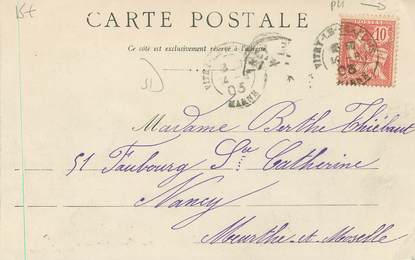 15+
CARTE POSTALE
Ce côté est exclusivement réservé à l'adresse
10
VITRY-LE-
05
MARNE
VITRY-LE-
05
MARNE
51
Madame Berthe Thiébaut
51 Faubourg Ste Catherine
Nancy
Meurthe-et-Moselle